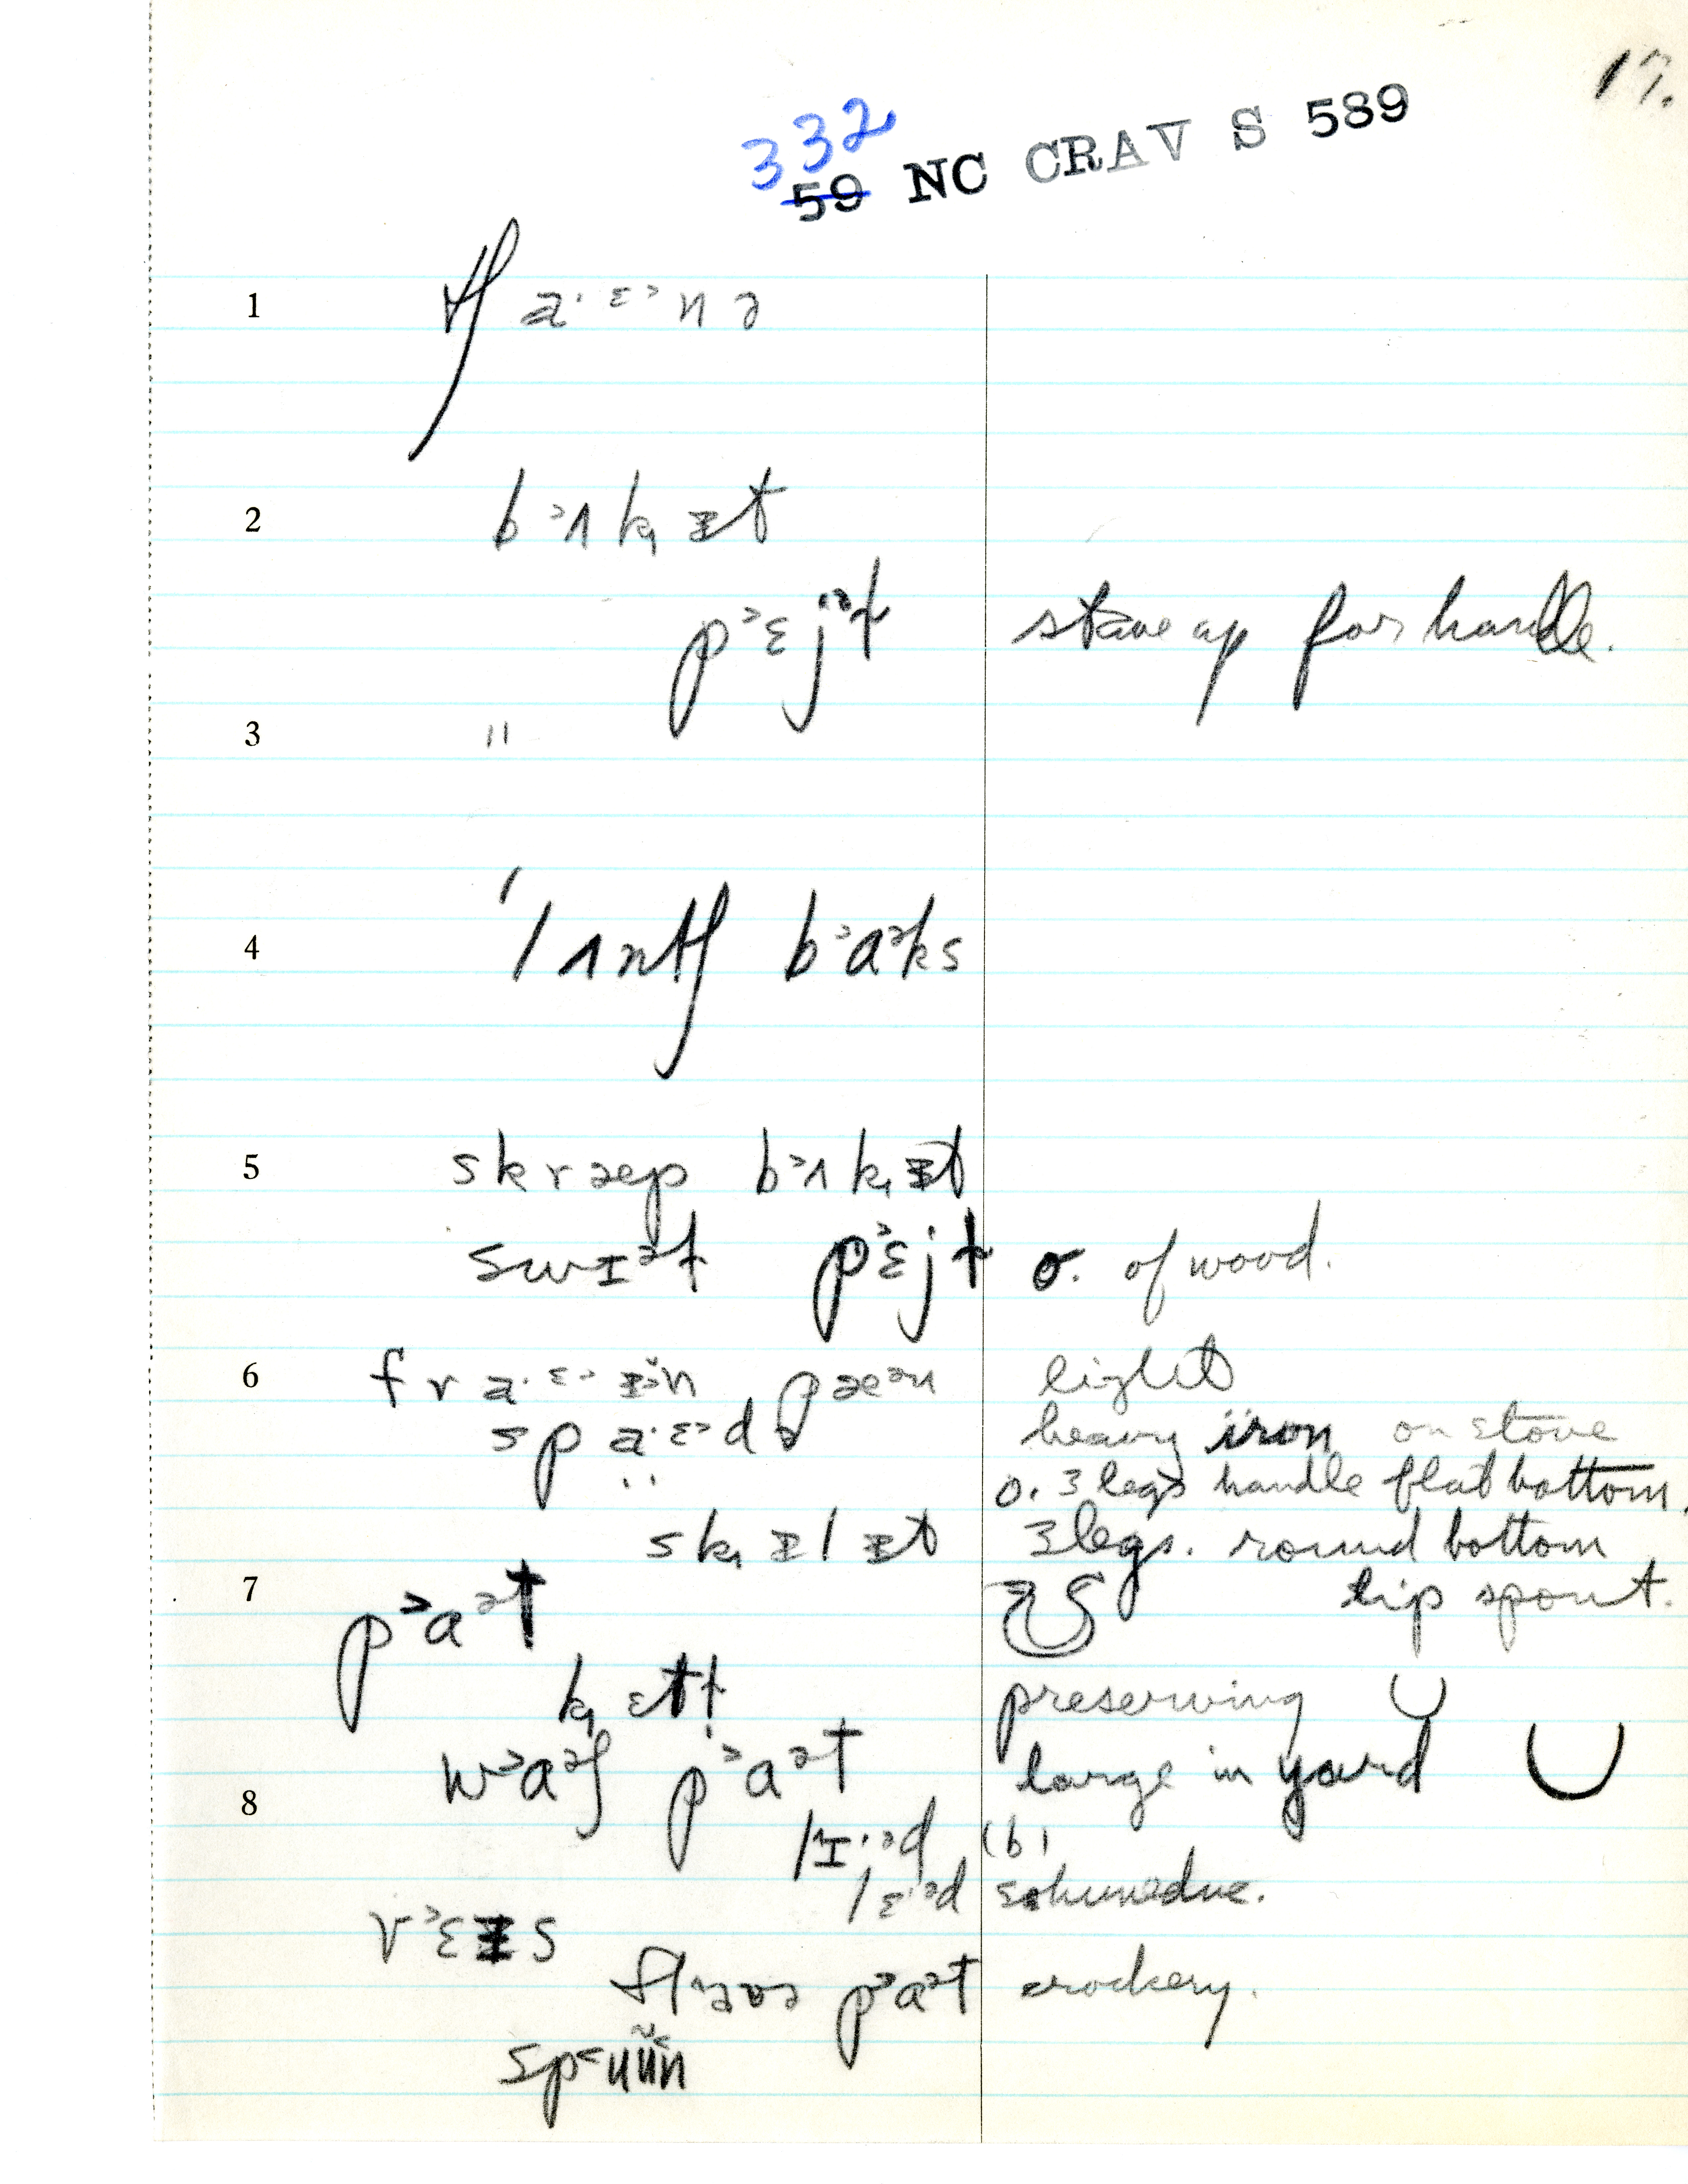 17.
332
59 NC CRAV S 589
1 tʃ a· ɛ˃ n ə
2 b ˃ʌ k̟ ɪ t
p ˃ɛ j ə t stave up for handle.
3 "
4 ˈl ʌ n tʃ b ˃ɑ ə k s
5 s k r æ p b ˃ʌ k̟ ɪ t
s w ɪ ə t p ˃ɛ j t o. of wood.
6 f r a· ɛ˃ ɪ n p æ ə n light
s p a· ɛ˃ d ə heavy iron on stove
" o. 3 legs handle flat bottom.
s k̟ ɪ l ɪ t 3 legs. round bottom
7 p ˃ɑ ə t lip spout.
k̟ ɛ t ɫ preserving
w ˃ɑ ə ʃ p ˃ɑ ə t large in yard
8 l ɪ· ə d (b)
l ɛ· ə d
v ˃ɛ ɪ s
p ˃ɑ ə t crockery.
s p ˂u ŭ n